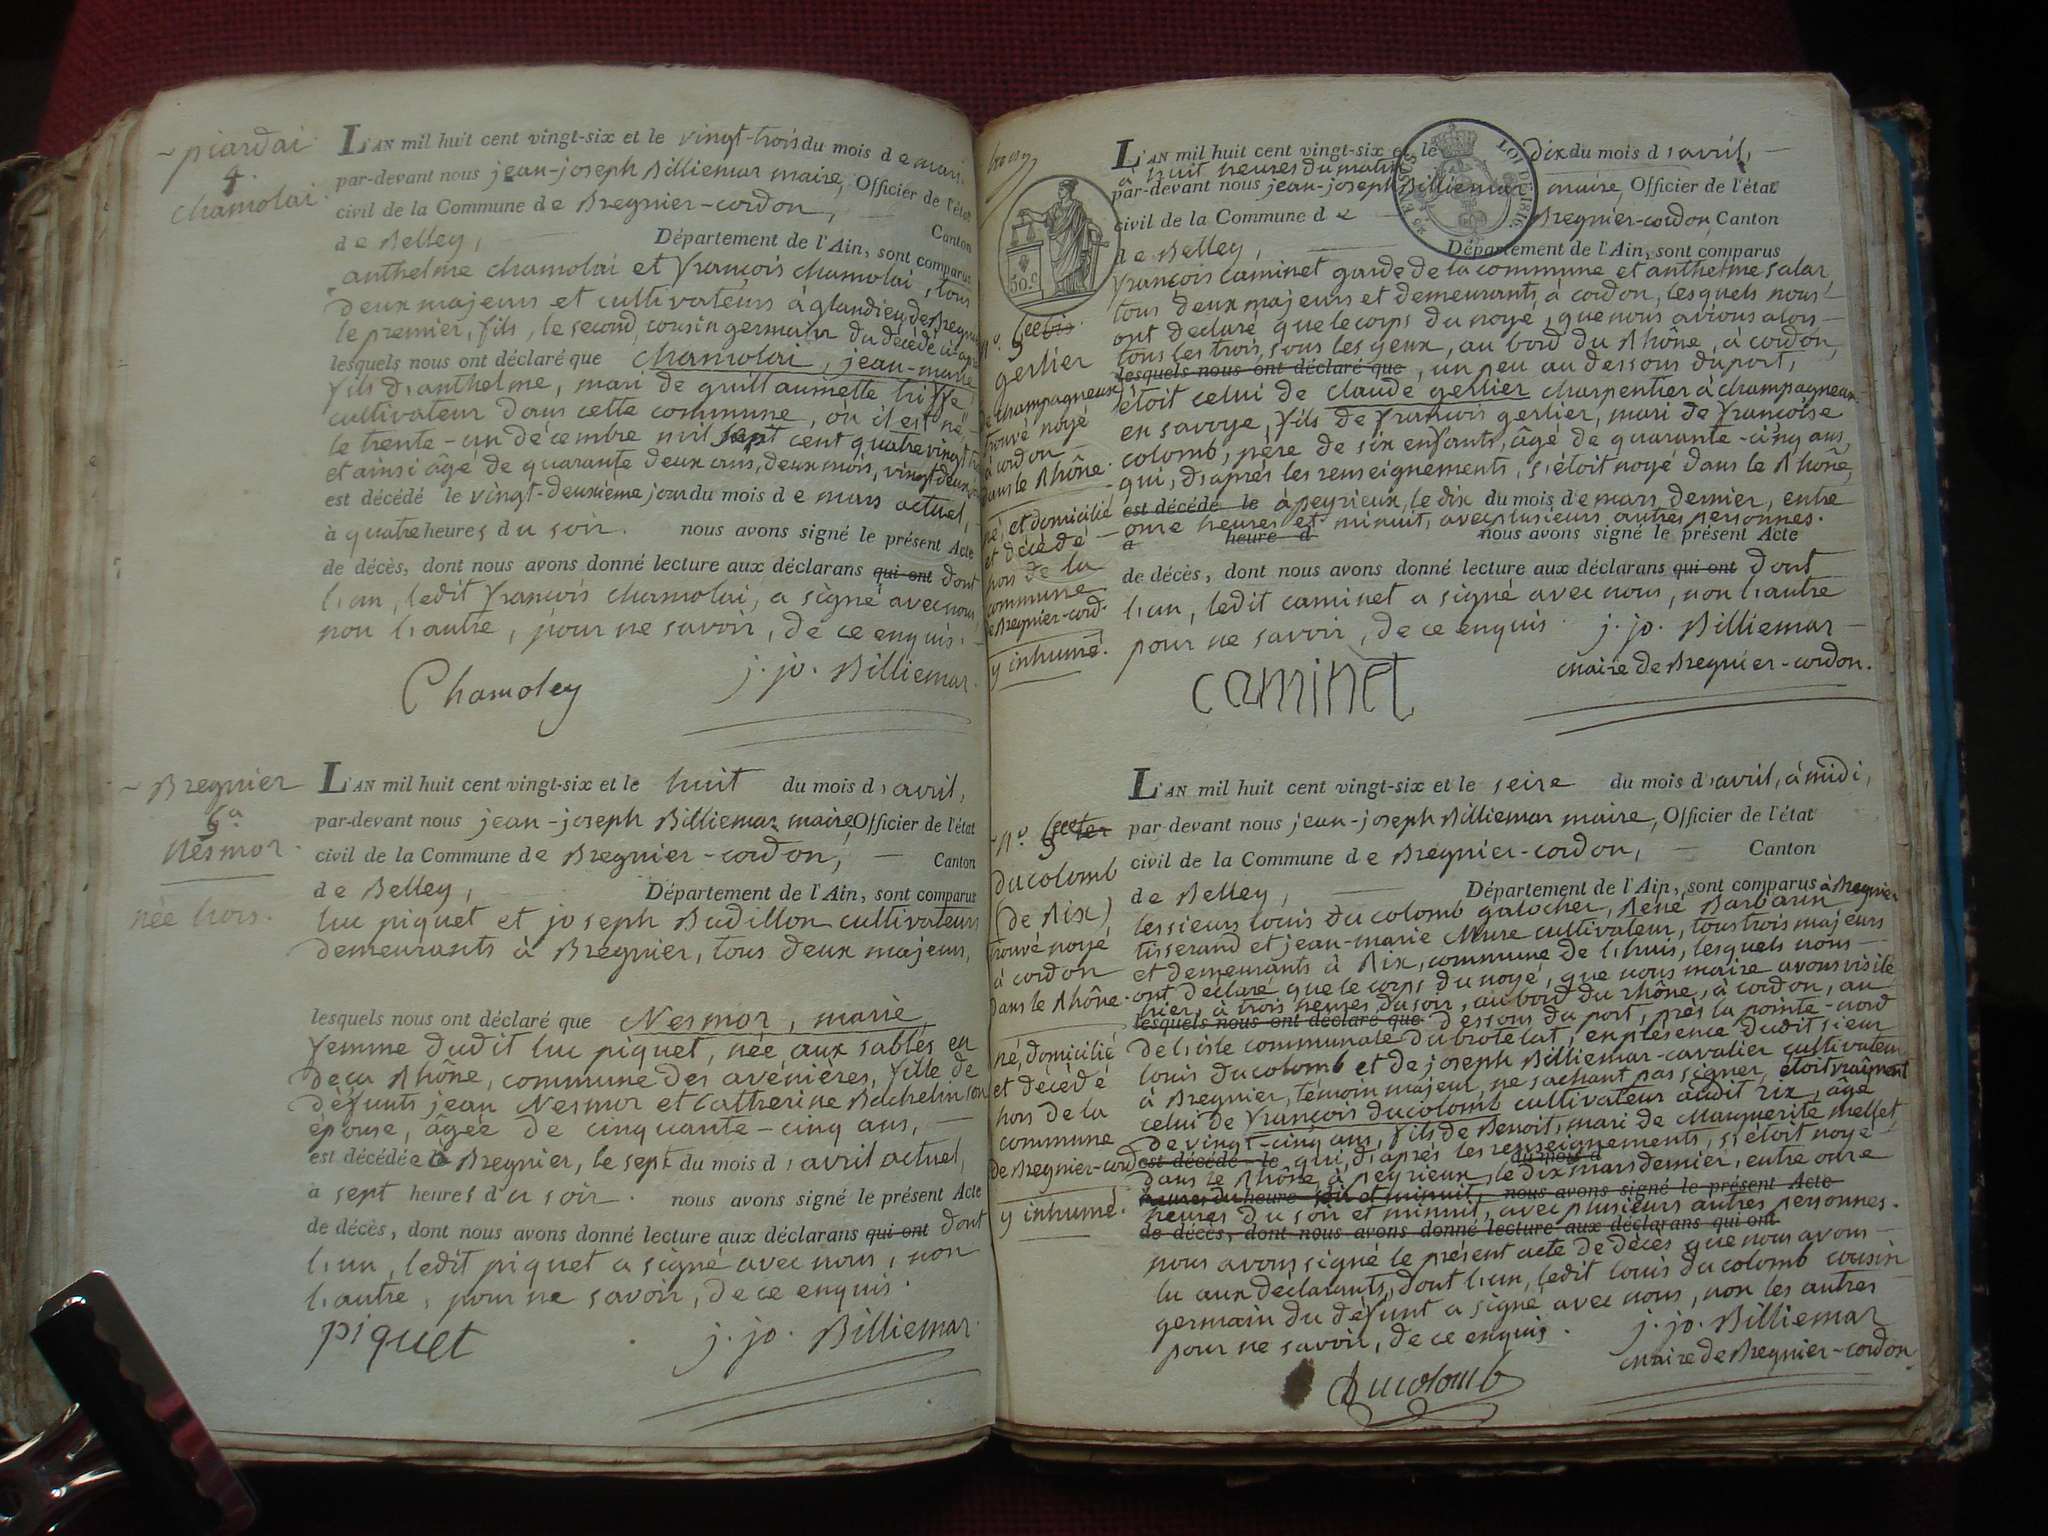 ~ piardai
4.
chamolai.
L'AN mil huit cent vingt-six et le vingt-trois du mois de mars
par-devant nous jean-joseph Billiemar maire, Officier de l'état
civil de la Commune de Bregnier-cordon, Canton
de Belley, Département de l'Ain, sont comparus
anthelme chamolai et françois chamolai, tous
deux majeurs et cultivateurs à glandieu, de Bregnier
le premier, fils, le second, cousin germain du décédé ci-après
lesquels nous ont déclaré que chamolai, jean-marie
fils d'anthelme, mari de guillaumette triffe,
cultivateur dans cette commune, où il est né
le trente-un décembre mil sept cent quatre vingt
et ainsi âgé de quarante deux ans, deux mois, vingt deux
est décédé le vingt-deuxième jour du mois de mars actuel,
à quatre heures du soir. nous avons signé le présent Acte
de décès, dont nous avons donné lecture aux déclarans qui ont dont
l'un, ledit françois chamolai, a signé avec nous,
non l'autre, pour ne savoir, de ce enquis.
Chamoley j. jo. Billiemar.
~ Bregnier
Nesmor.
née trois.
L'AN mil huit cent vingt-six et le huit du mois d'avril,
par-devant nous jean-joseph Billiemar maire Officier de l'état
civil de la Commune de Bregnier-cordon, Canton
de Belley, Département de l'Ain, sont comparus
luc piquet et joseph Budillon cultivateurs
demeurants à Bregnier, tous deux majeurs,
lesquels nous ont déclaré que Nesmor, marie
femme dudit luc piquet, née aux sables en
deça Rhône, commune des avénières, fille de
défunts jean Nesmor et catherine Bachelin son
épouse, âgée de cinquante-cinq ans,
est décédée à Bregnier, le sept du mois d'avril actuel,
à sept heures du soir. nous avons signé le présent Acte
de décès, dont nous avons donné lecture aux déclarans qui ont dont
l'un, ledit piquet a signé avec nous, non
l'autre, pour ne savoir, de ce enquis.
piquet j. jo. Billiemar.
50.c
LOI DE 1816
gerlier
de champagneux
trouvé noyé
à cordon
dans le Rhône.
né, et domicilié
et décédé
hors de la
commune
de Bregnier-cord.
y inhumé.
L'AN mil huit cent vingt-six et le dix du mois d'avril,
à huit heures du matin
par-devant nous jean-joseph Billiemar maire, Officier de l'état
civil de la Commune de Bregnier-cordon, Canton
de Belley, Département de l'Ain, sont comparus
françois caminet garde de la commune et anthelme salar
tous deux majeurs et demeurants à cordon, lesquels nous
ont declaré que le corps du noyé, que nous avions alors
tous les trois, sous les yeux, au bord du Rhône, à cordon,
lesquels nous ont déclaré que, un peu au dessous du port,
étoit celui de claude gerlier charpentier à champagneux
en savoye, fils de françois gerlier, mari de françoise
colomb, père de six enfants, âgé de quarante-cinq ans,
qui, d'après les renseignements, s'étoit noyé dans le Rhône,
est décédé le à peyrieux, le dix du mois de mars dernier, entre
onze heures et minuit, avec plusieurs autres personnes.
à heure d nous avons signé le présent Acte
de décès, dont nous avons donné lecture aux déclarans qui ont dont
l'un, ledit caminet a signé avec nous, non l'autre
pour ne savoir, de ce enquis. j. jo. Billiemar
maire de Bregnier-cordon.
caminet
ducolomb
(de Rix)
trouvé noyé
à cordon
dans le Rhône.
né, domicilié
et décédé
hors de la
commune
de Bregnier-cord
y inhumé.
L'AN mil huit cent vingt-six et le seize du mois d'avril, à midi,
par-devant nous jean-joseph Billiemar maire, Officier de l'état
civil de la Commune de Bregnier-cordon, Canton
de Belley, Département de l'Ain, sont comparus à Bregnier
les sieurs louis ducolomb galocher, René Barbarin
tisserand et jean-marie Mure cultivateur, tous trois majeurs
et demeurants à Rix, commune de l'huis, lesquels nous
ont déclaré que le corps du noyé, que nous maire avons visité
hier, à trois heures du soir, au bord du rhône, à cordon, au
lesquels nous ont déclaré que dessous du port, près la pointe-nord
de l'isle communale du brotelat, en présence dudit sieur
louis ducolomb et de joseph Billiemar-cavalier cultivateur
à Bregnier, témoin majeur, ne sachant pas signer, étoit vraiment
celui de françois ducolomb cultivateur audit rix, âgé
de vingt-cinq ans, fils de Benoit, mari de Marguerite mellet,
est décédé le qui, d'après les renseignements, s'étoit noyé
du mois d
dans le Rhône, à peyrieux, le dix mars dernier, entre onze
heure nous avons signé le présent Acte
heures du soir et minuit, avec plusieurs autres personnes.
de décès, dont nous avons donné lecture aux déclarans qui ont
nous avons signé le présent acte de décès que nous avons
lu aux déclarants, dont l'un, ledit louis ducolomb cousin
germain du défunt a signé avec nous, non les autres
pour ne savoir, de ce enquis. j. jo. Billiemar
maire de Bregnier-cordon.
Ducolomb